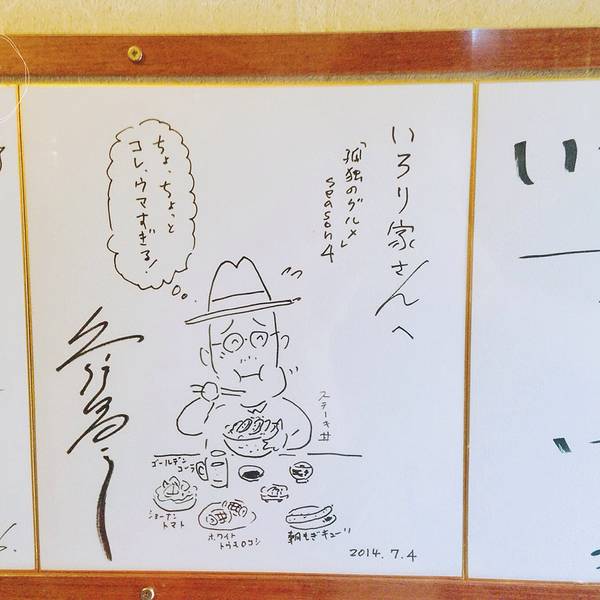 いろり家さんへ
「孤独のグルメ」
season4
ちょ、ちょっと
コレ、ウマすぎる!
ステーキ丼
ゴールデン
コーラ
ショーナン
トマト
ホワイト
トウモロコシ
朝もぎキューリ
2014.7.4
い